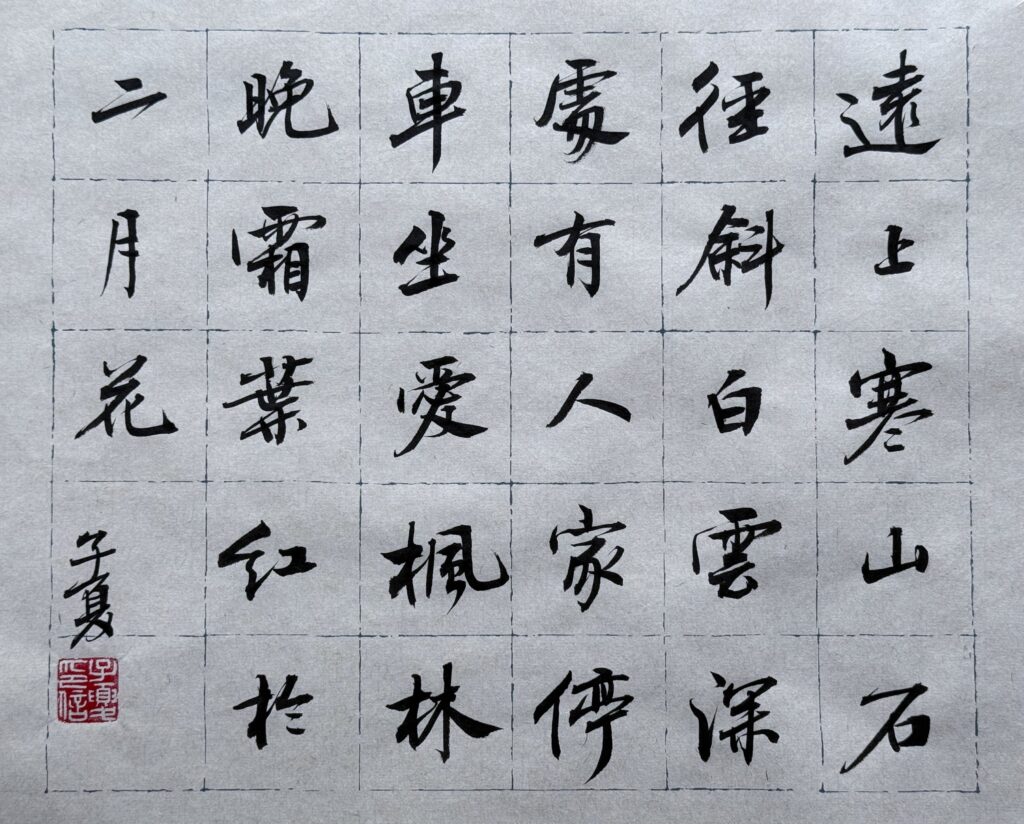 遠上寒山石
徑斜白雲深
處有人家停
車坐愛楓林
晚霜葉紅於
二月花
子夏
子夏印信